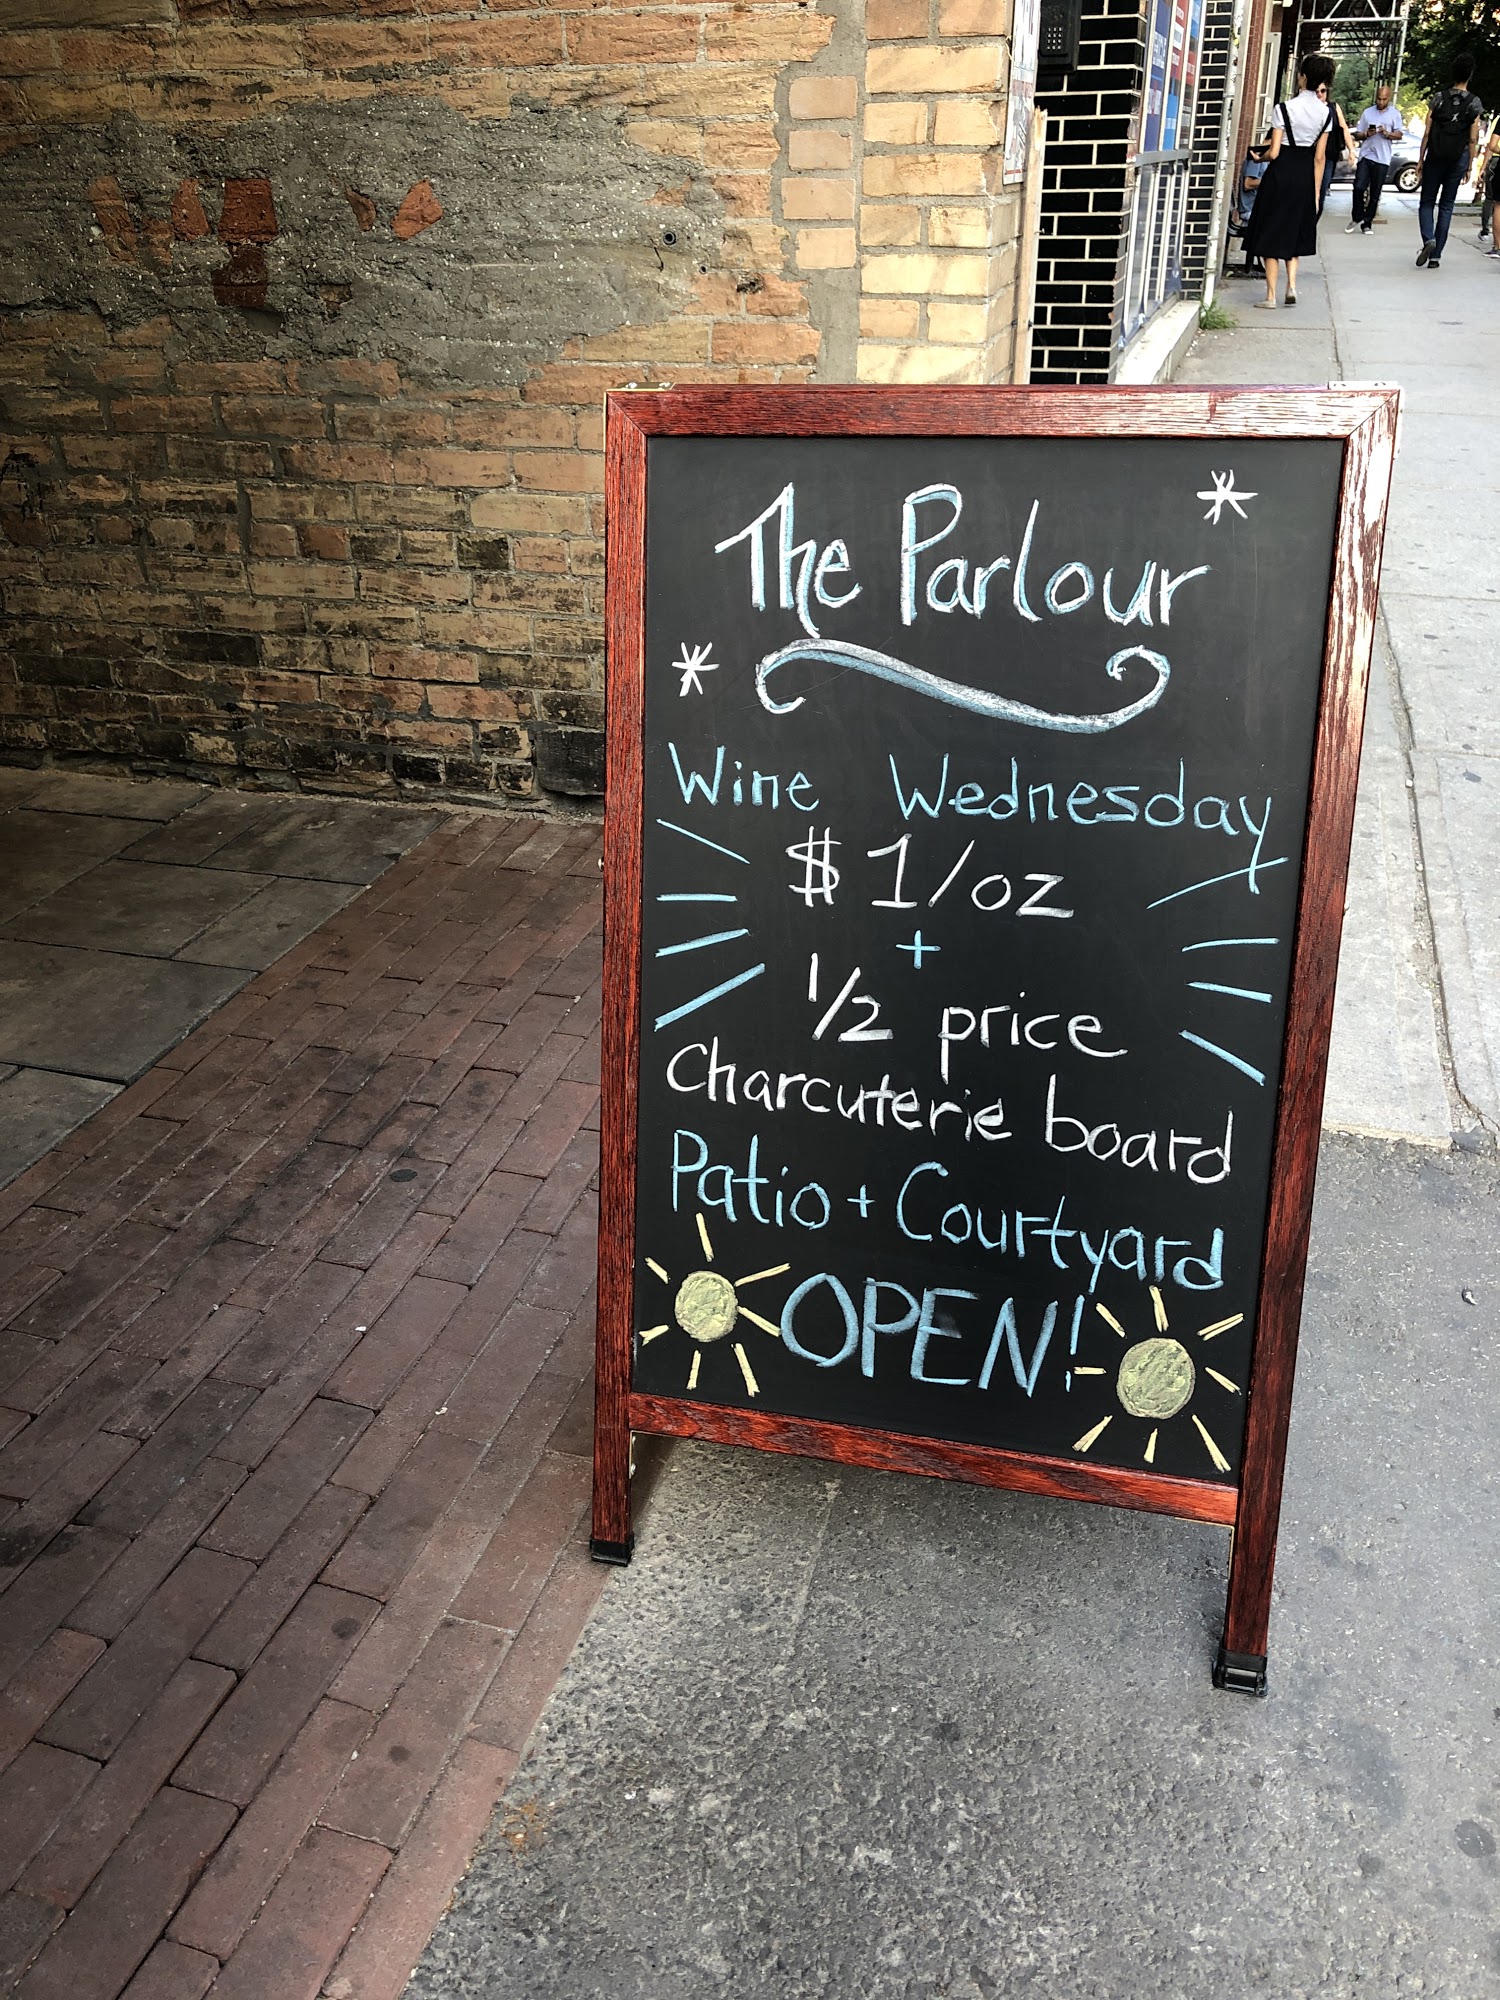 The Parlour
Wine Wednesday
$1/oz
+
1/2 price
Charcuterie board
Patio + Courtyard
OPEN!